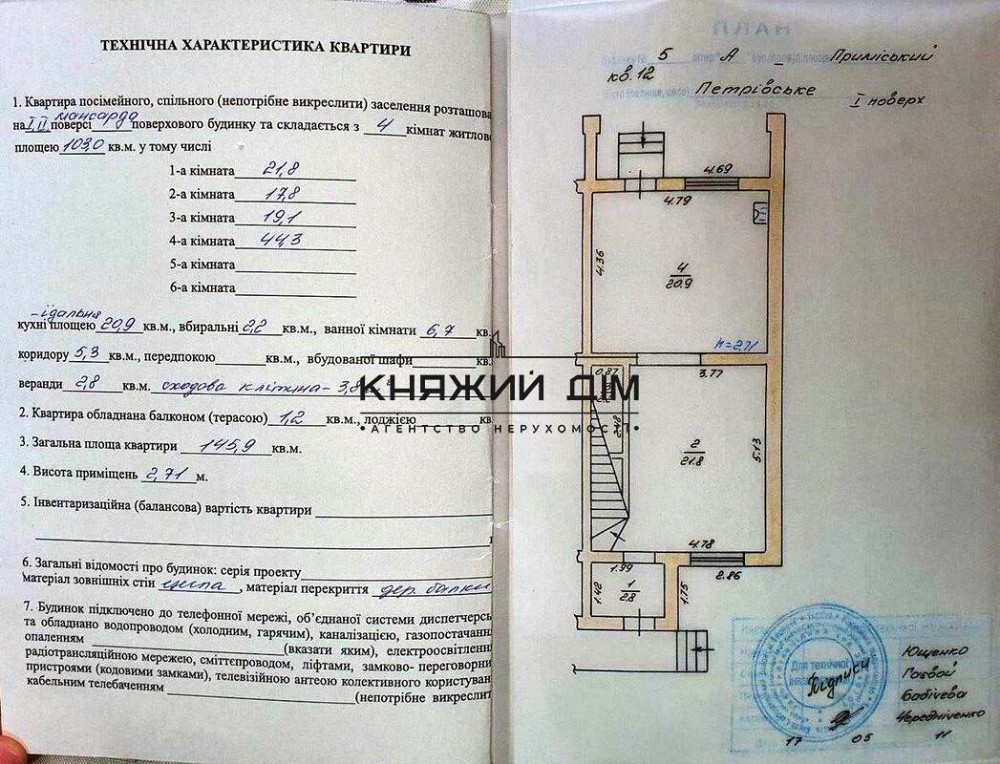 ТЕХНІЧНА ХАРАКТЕРИСТИКА КВАРТИРИ
1. Квартира посімейного, спільного (непотрібне викреслити) заселення розташова
на I, II поверсі мансарда поверхового будинку та складається з 4 кімнат житлово
площею 103,0 кв.м. у тому числі
1-а кімната 21,8
2-а кімната 17,8
3-а кімната 19,1
4-а кімната 44,3
5-а кімната
6-а кімната
-їдальня
кухні площею 20,9 кв.м., вбиральні 2,2 кв.м., ванної кімнати 6,7 кв.
коридору 5,3 кв.м., передпокою кв.м., вбудованої шафи кв.
веранди 2,8 кв.м. сходова клітина - 3,8
2. Квартира обладнана балконом (терасою) 1,2 кв.м., лоджією кв
3. Загальна площа квартири 145,9 кв.м.
4. Висота приміщень 2,71 м.
5. Інвентаризаційна (балансова) вартість квартири
6. Загальні відомості про будинок: серія проекту
матеріал зовнішніх стін цегла, матеріал перекриття дер. балки
7. Будинок підключено до телефонної мережі, об'єднаної системи диспетчерсь
та обладнано водопроводом (холодним, гарячим), каналізацією, газопостачанн
опаленням (вказати яким), електроосвітленн
радіотрансляційною мережею, сміттєпроводом, ліфтами, замково- переговорни
пристроями (кодовими замками), телевізійною антеою колективного користуван
кабельним телебаченням (непотрібне викреслит
КНЯЖИЙ ДІМ
•АГЕНТСТВО НЕРУХОМОСТІ•
5 А - Приміський
кв. 12
Петрівське
I поверх
4.69
4.79
4.36
4
20.9
h=2.71
3.77
0.87
2.48
2
21.8
5.13
4.78
1.99
2.86
1.42
1
2.8
1.75
Для технічної
Підписи
Ющенко
Гаєвой
Бабічева
Чередніченко
17 05 11